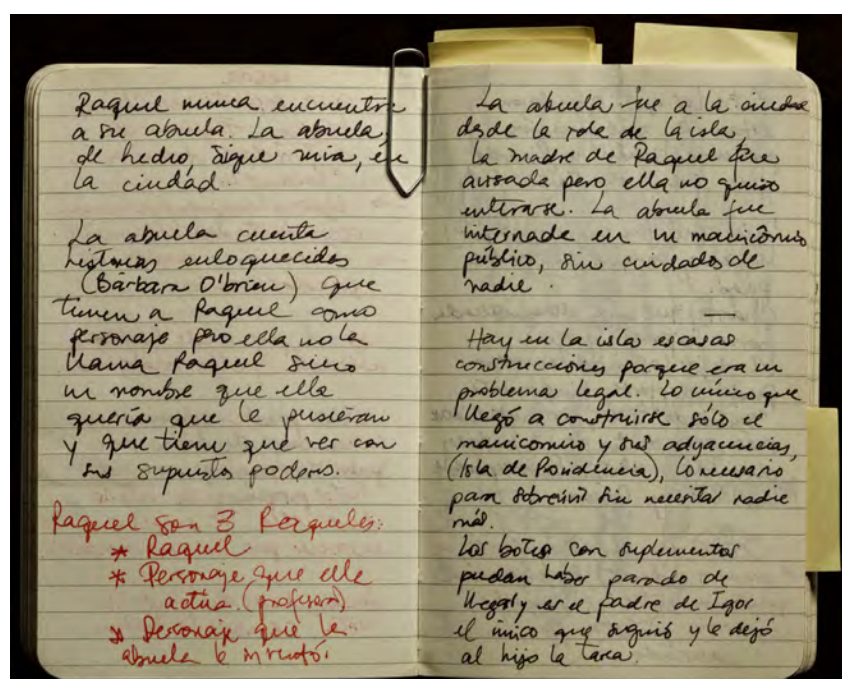 Raquel nunca encuentra
a su abuela. La abuela,
de hecho, sigue viva, en
la ciudad.
La abuela cuenta
historias enloquecidas
(Bárbara O'brien) que
tienen a Raquel como
personaje pero ella no la
llama Raquel sino
un nombre que ella
quería que le pusieran
y que tiene que ver con
sus supuestos poderes.
Raquel son 3 Raqueles:
* Raquel
* Personaje que ella
actúa (profesora)
* Personaje que la
abuela le inventó.
La abuela fue a la ciudad
desde la isla,
la madre de Raquel fue
avisada pero ella no quiso
enterarse. La abuela fue
internada en un manicomio
público, sin cuidados de
nadie.
Hay en la isla escasas
construcciones porque era un
problema legal. Lo único que
llegó a construirse sólo el
manicomio y sus adyacencias,
(Isla de Providencia), lo necesario
para sobrevivir sin necesitar nadie
más.
Los botes con suplementos
pudan haber parado de
llegar y es el padre de Igor
el único que siguió y le dejó
al hijo la tarea.